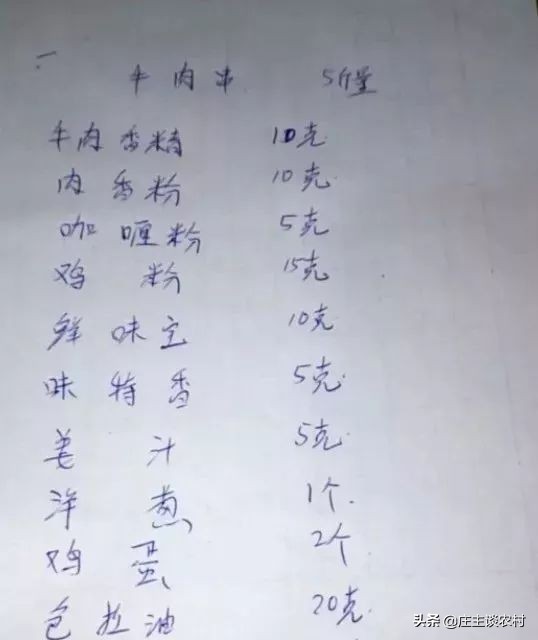 一
牛肉串 5斤量
牛肉香精 10克
肉香粉 10克
咖喱粉 5克
鸡粉 15克
鲜味宝 10克
味特香 5克
姜汁 5克
洋葱 1个
鸡蛋 2个
色拉油 20克
头条 @庄主谈农村